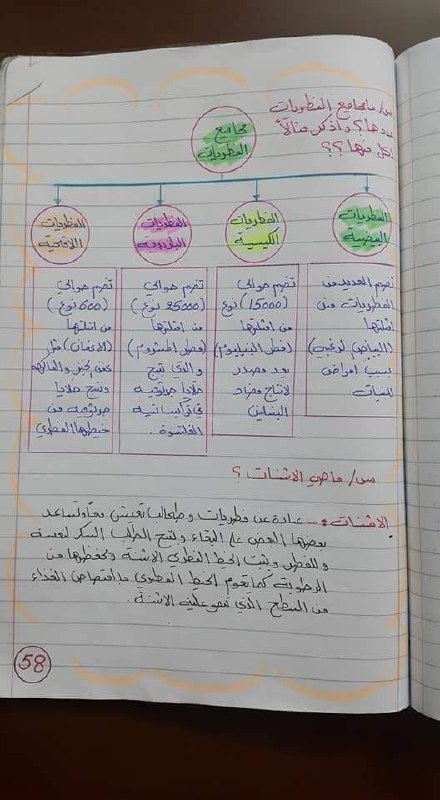 س/ ما مجاميع الفطريات
عددها؟ واذكر مثالاً
لكل منها؟؟
مجاميع
الفطريات
الفطريات
البيضية
الفطريات
الكيسية
الفطريات
البازيدية
الفطريات
اللاقحية
تضم العديد من
الفطريات ومن
امثلتها
(البياض الزغبي)
يسبب امراض
للنبات
تضم حوالي
(15000) نوع
من امثلتها
(فطر البنسليوم)
يعد مصدر
لانتاج مضاد
البنسلين
تضم حوالي
(25000 نوع)
من امثلتها
(فطر المشروم)
والذي ينتج
خلايا جرثومية
في تراكيب تشبه
القلنسوة.
تضم حوالي
(600 نوع)
من امثلتها
(الاعفان) مثل
عفن الخبز والفاكهة
وتنتج خلايا
جرثومية من
خيطها الفطري
س/ ما هي الاشنات ؟
الاشنات :- عبارة عن فطريات وطحالب تعيش معاً وتساعد
بعضها البعض على البقاء وينتج الطحلب السكر لنفسه
وللفطر ويثبت الخيط الفطري الاشنة ويحفظها من
الرطوبة كما يقوم الخيط الفطري بامتصاص الغذاء
من السطح الذي تنمو عليه الاشنة.
58